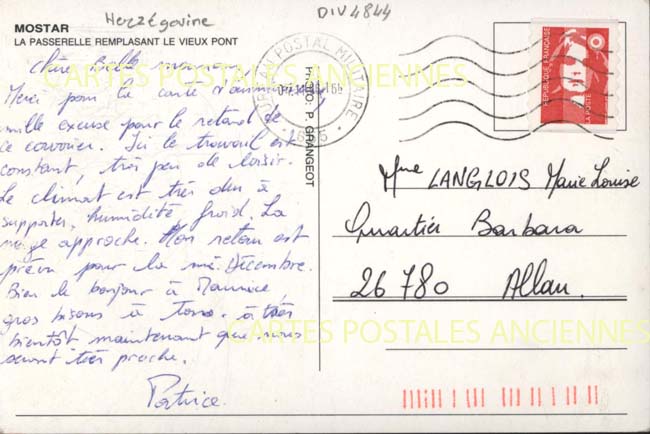 Herzégovine
DIV4844
MOSTAR
LA PASSERELLE REMPLASANT LE VIEUX PONT
Chère Belle
CARTES POSTALES ANCIENNES
Merci pour la carte
mille excuse pour le retard de
ce courrier. Ici le travail est
constant, très peu de loisir.
Le climat est très dur à
supporter, humidité, froid. La
neige approche. Mon retour est
prévu pour la mi-Décembre.
Bien le bonjour à Maurice
gros bisous à tous. à très
bientôt, maintenant que nous
seront très proche.
Patrice.
PHOTO. P. GRANGEOT
BUREAU POSTAL MILITAIRE
REPUBLIQUE FRANÇAISE
LA POSTE
Mme LANGLOIS Marie Louise
Quartier Barbara
26 780 Allan.
CARTES POSTALES ANCIENNES